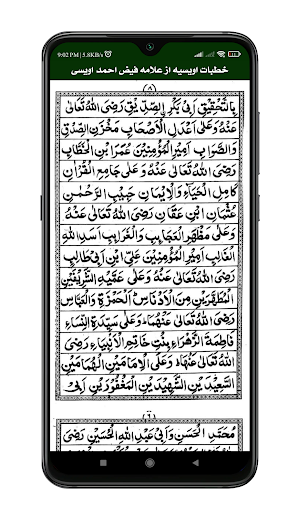 9:02 PM | 5.8KB/s
خطبات اویسیه از علامه فیض احمد اویسی
(۵)
بِالتَّحْقِيْقِ اَبِيْ بَكْرِ الصِّدِّيْقِ رَضِيَ اللهُ تَعَالٰى
عَنْهُ وَعَلٰى اَعْدَلِ الْاَصْحَابِ مَخْزَنِ الصِّدْقِ
وَالصَّوَابِ اَمِيْرِ الْمُؤْمِنِيْنَ عُمَرَ ابْنِ الْخَطَّابِ
رَضِيَ اللهُ تَعَالٰى عَنْهُ وَعَلٰى جَامِعِ الْقُرْاٰنِ
كَامِلِ الْحَيَآءِ وَالْاِيْمَانِ حَبِيْبِ الرَّحْمٰنِ
عُثْمَانَ ابْنِ عَفَّانَ رَضِيَ اللهُ تَعَالٰى عَنْهُ وَ
عَلٰى مَظْهَرِ الْعَجَآئِبِ وَالْغَرَآئِبِ اَسَدِ اللهِ
الْغَالِبِ اَمِيْرِ الْمُؤْمِنِيْنَ عَلِيِّ ابْنِ اَبِيْ طَالِبٍ
رَضِيَ اللهُ تَعَالٰى عَنْهُ وَعَلٰى عَمَّيْهِ الشَّرِيْفَيْنِ
الْمُطَهَّرَيْنِ مِنَ الْاَدْنَاسِ الْحَمْزَةِ وَالْعَبَّاسِ
رَضِيَ اللهُ تَعَالٰى عَنْهُمَا وَعَلٰى سَيِّدَةِ النِّسَآءِ
فَاطِمَةَ الزَّهْرَآءِ بِنْتِ خَاتَمِ الْاَنْبِيَآءِ رَضِيَ
اللهُ تَعَالٰى عَنْهَا وَعَلَى الْاِمَامَيْنِ الْهُمَامَيْنِ
السَّعِيْدَيْنِ الشَّهِيْدَيْنِ الْمَغْفُوْرَيْنِ اَبِيْ
(۶)
مُحَمَّدِ الْحَسَنِ وَاَبِيْ عَبْدِ اللهِ الْحُسَيْنِ رَضِيَ